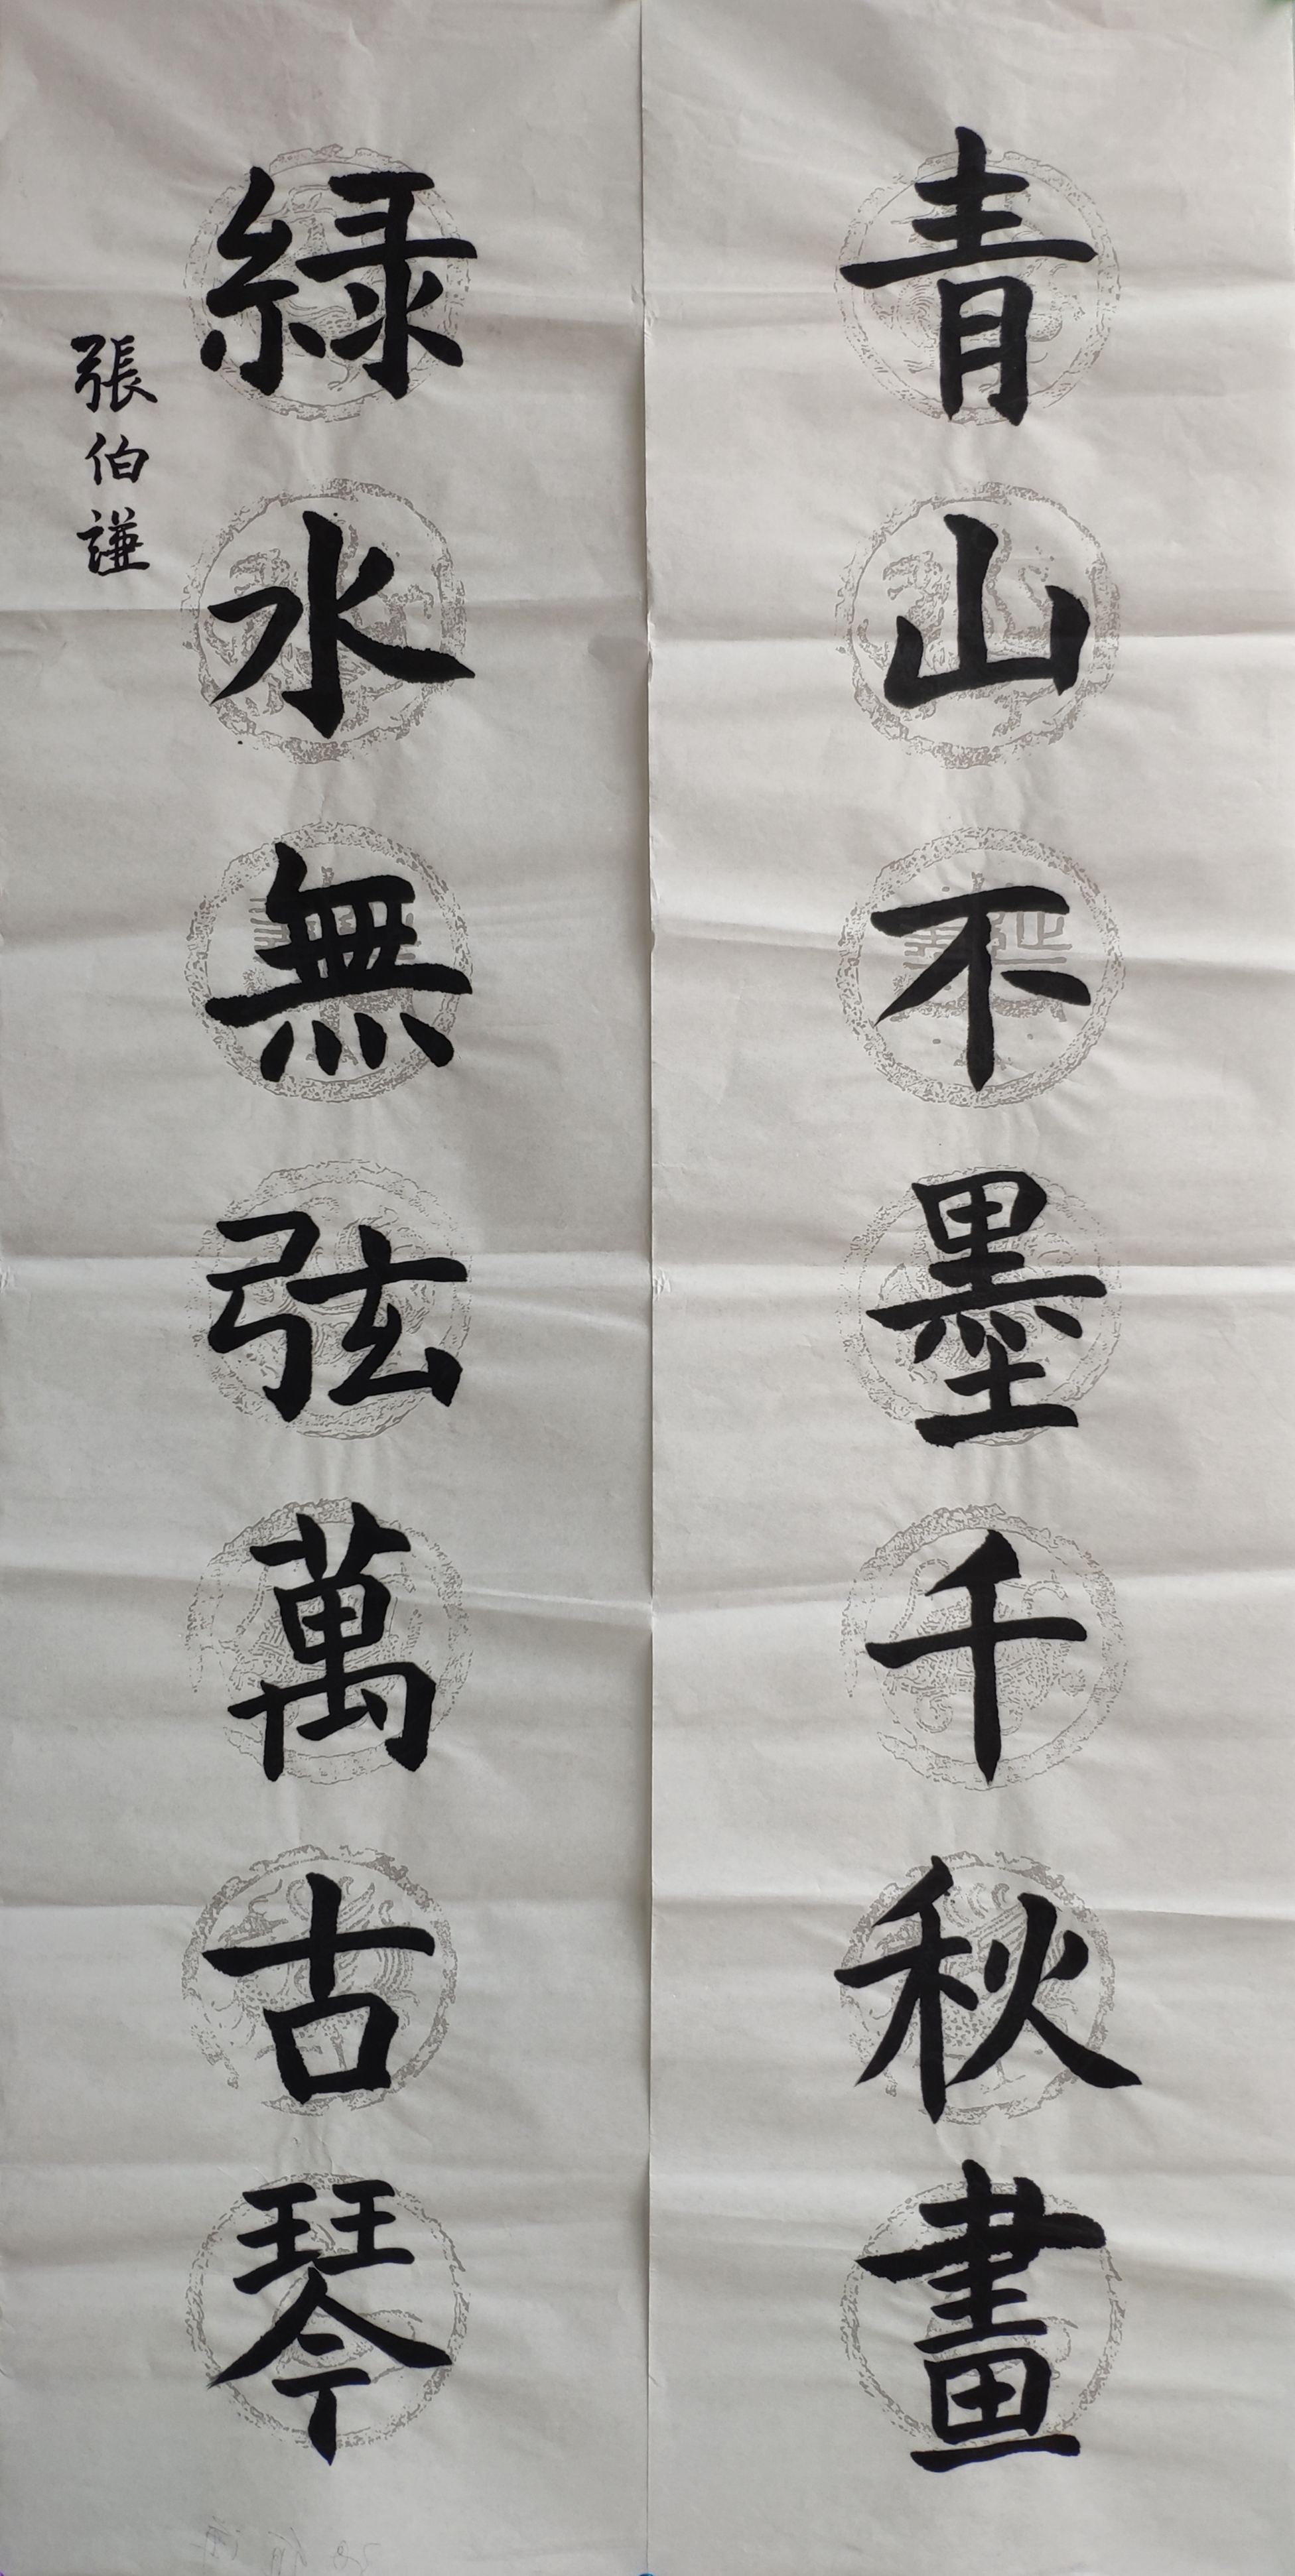 青山不墨千秋畫
綠水無弦萬古琴
張伯謙